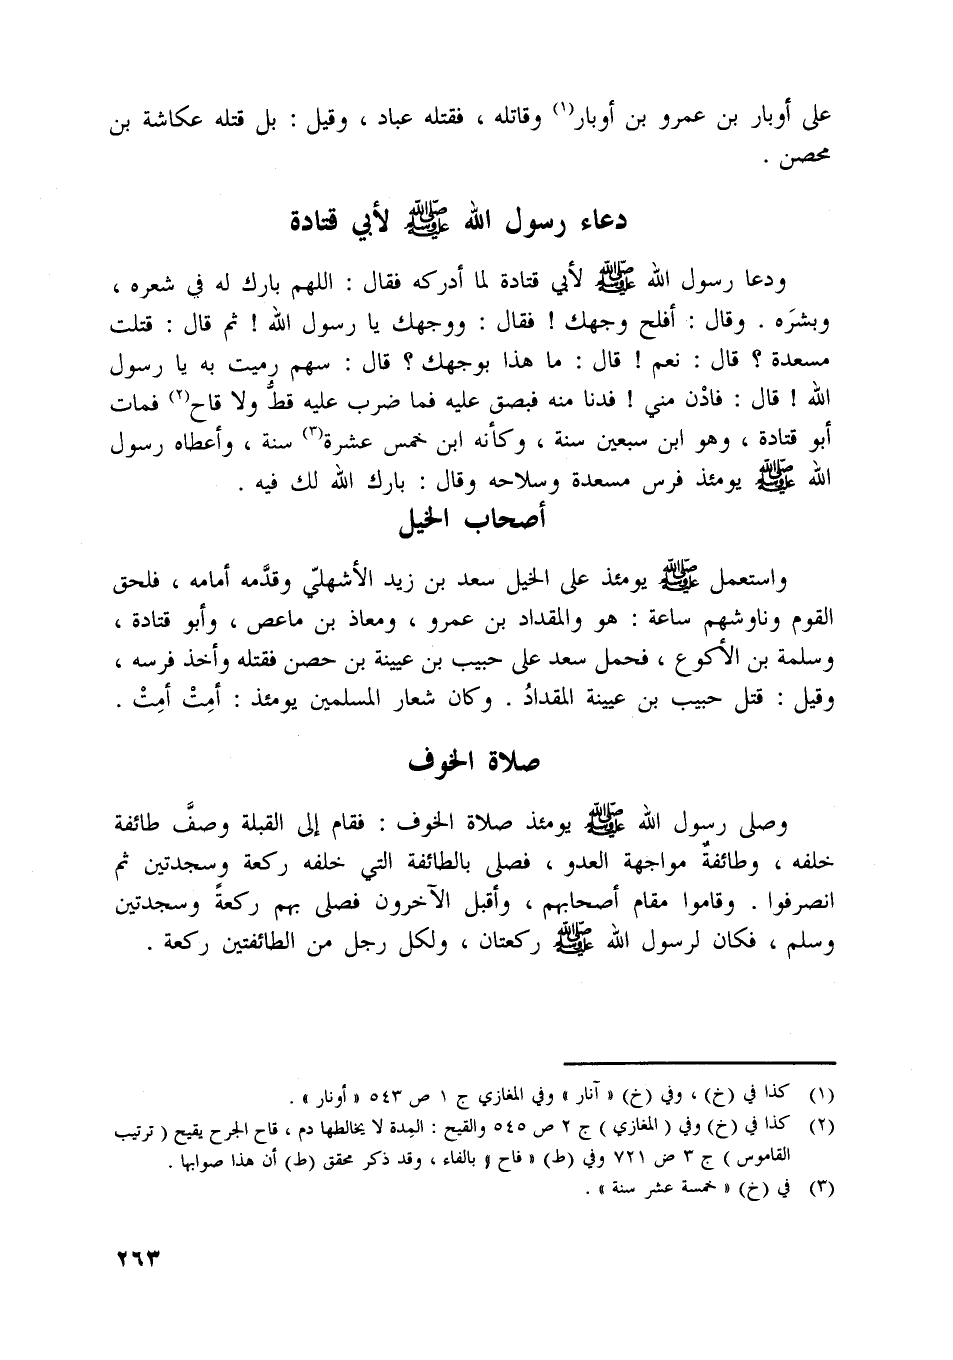 على أوبار بن عمرو بن أوبار(١) وقاتله ، فقتله عباد ، وقيل : بل قتله عكاشة بن
محصن .
دعاء رسول الله ﷺ لأبي قتادة
ودعا رسول الله ﷺ لأبي قتادة لما أدركه فقال : اللهم بارك له في شعره ،
وبشَره . وقال : أفلح وجهك ! فقال : ووجهك يا رسول الله ! ثم قال : قتلت
مسعدة ؟ قال : نعم ! قال : ما هذا بوجهك ؟ قال : سهم رميت به يا رسول
الله ! قال : فادْن مني ! فدنا منه فبصق عليه فما ضرب عليه قطُّ ولا قاح(٢) فمات
أبو قتادة ، وهو ابن سبعين سنة ، وكأنه ابن خمس عشرة(٣) سنة ، وأعطاه رسول
الله ﷺ يومئذ فرس مسعدة وسلاحه وقال : بارك الله لك فيه .
أصحاب الخيل
واستعمل ﷺ يومئذ على الخيل سعد بن زيد الأشهليّ وقدَّمه أمامه ، فلحق
القوم وناوشهم ساعة : هو والمقداد بن عمرو ، ومعاذ بن ماعص ، وأبو قتادة ،
وسلمة بن الأكوع ، فحمل سعد على حبيب بن عيينة بن حصن فقتله وأخذ فرسه ،
وقيل : قتل حبيب بن عيينة المقدادُ . وكان شعار المسلمين يومئذ : أمِتْ أمِتْ .
صلاة الخوف
وصلى رسول الله ﷺ يومئذ صلاة الخوف : فقام إلى القبلة وصفَّ طائفة
خلفه ، وطائفةٌ مواجهة العدو ، فصلى بالطائفة التي خلفه ركعة وسجدتين ثم
انصرفوا . وقاموا مقام أصحابهم ، وأقبل الآخرون فصلى بهم ركعةً وسجدتين
وسلم ، فكان لرسول الله ﷺ ركعتان ، ولكل رجل من الطائفتين ركعة .
(١) كذا في (خ) ، وفي (خ) « آنار » وفي المغازي ج ١ ص ٥٤٣ « أونار » .
(٢) كذا في (خ) وفي ( المغازي ) ج ٢ ص ٥٤٥ والقيح : المِدة لا يخالطها دم ، قاح الجرح يقيح ( ترتيب
القاموس ) ج ٣ ص ٧٢١ وفي (ط) « فاح » بالفاء ، وقد ذكر محقق (ط) أن هذا صوابها .
(٣) في (خ) « خمسة عشر سنة » .
٢٦٣